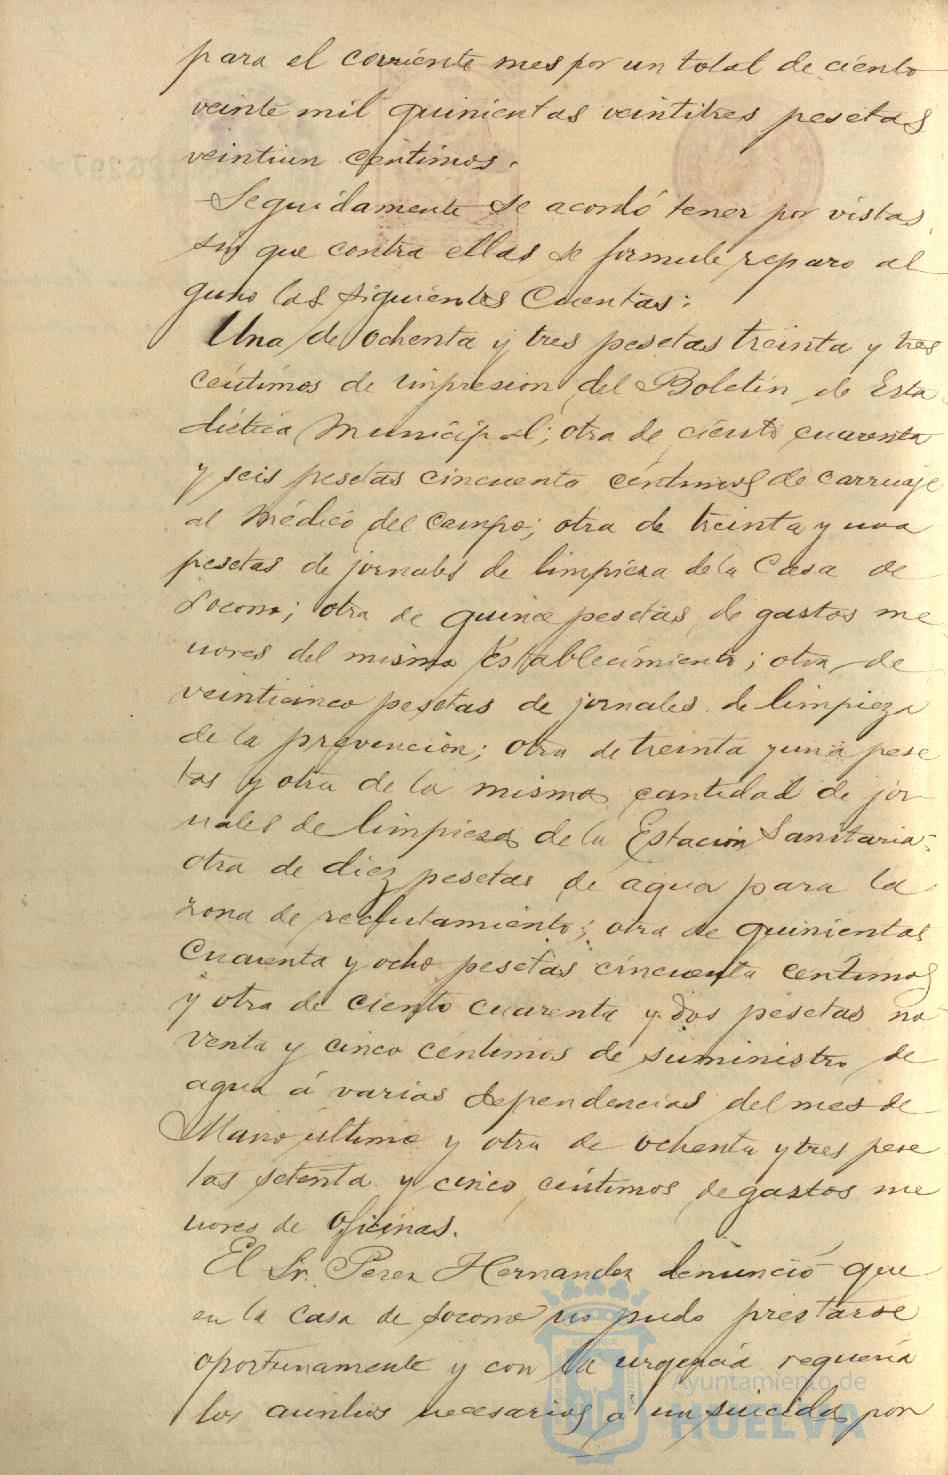 para el corriente mes por un total de ciento
veinte mil quinientas veintitres pesetas
veintiun centimos.
Seguidamente se acordó tener por vistas,
sin que contra ellas se formule reparo al
guno las siguientes Cuentas:
Una de ochenta y tres pesetas treinta y tres
centimos de impresion del Boletin de Esta
distica Municipal; otra de ciento cuarenta
y seis pesetas cincuenta centimos de carruaje
al Médico del Campo; otra de treinta y una
pesetas de jornales de limpieza de la Casa de
Socorro; otra de quince pesetas de gastos me
nores del mismo Establecimiento; otra de
veinticinco pesetas de jornales de limpieza
de la prevencion; otra de treinta y una pese
tas y otra de la misma cantidad de jor
nales de limpieza de la Estacion Sanitaria;
otra de diez pesetas de agua para la
zona de reclutamiento; otra de quinientas
cuarenta y ocho pesetas cincuenta centimos
y otra de ciento cuarenta y dos pesetas no
venta y cinco centimos de suministro de
agua á varias dependencias del mes de
Marzo último y otra de ochenta y tres pese
tas setenta y cinco centimos de gastos me
nores de Oficinas.
El Sr. Perez Hernandez denunció que
en la casa de socorro no pudo prestarse
oportunamente y con la urgencia requeria
los auxilios necesarios á un suicida por
Ayuntamiento de
HUELVA